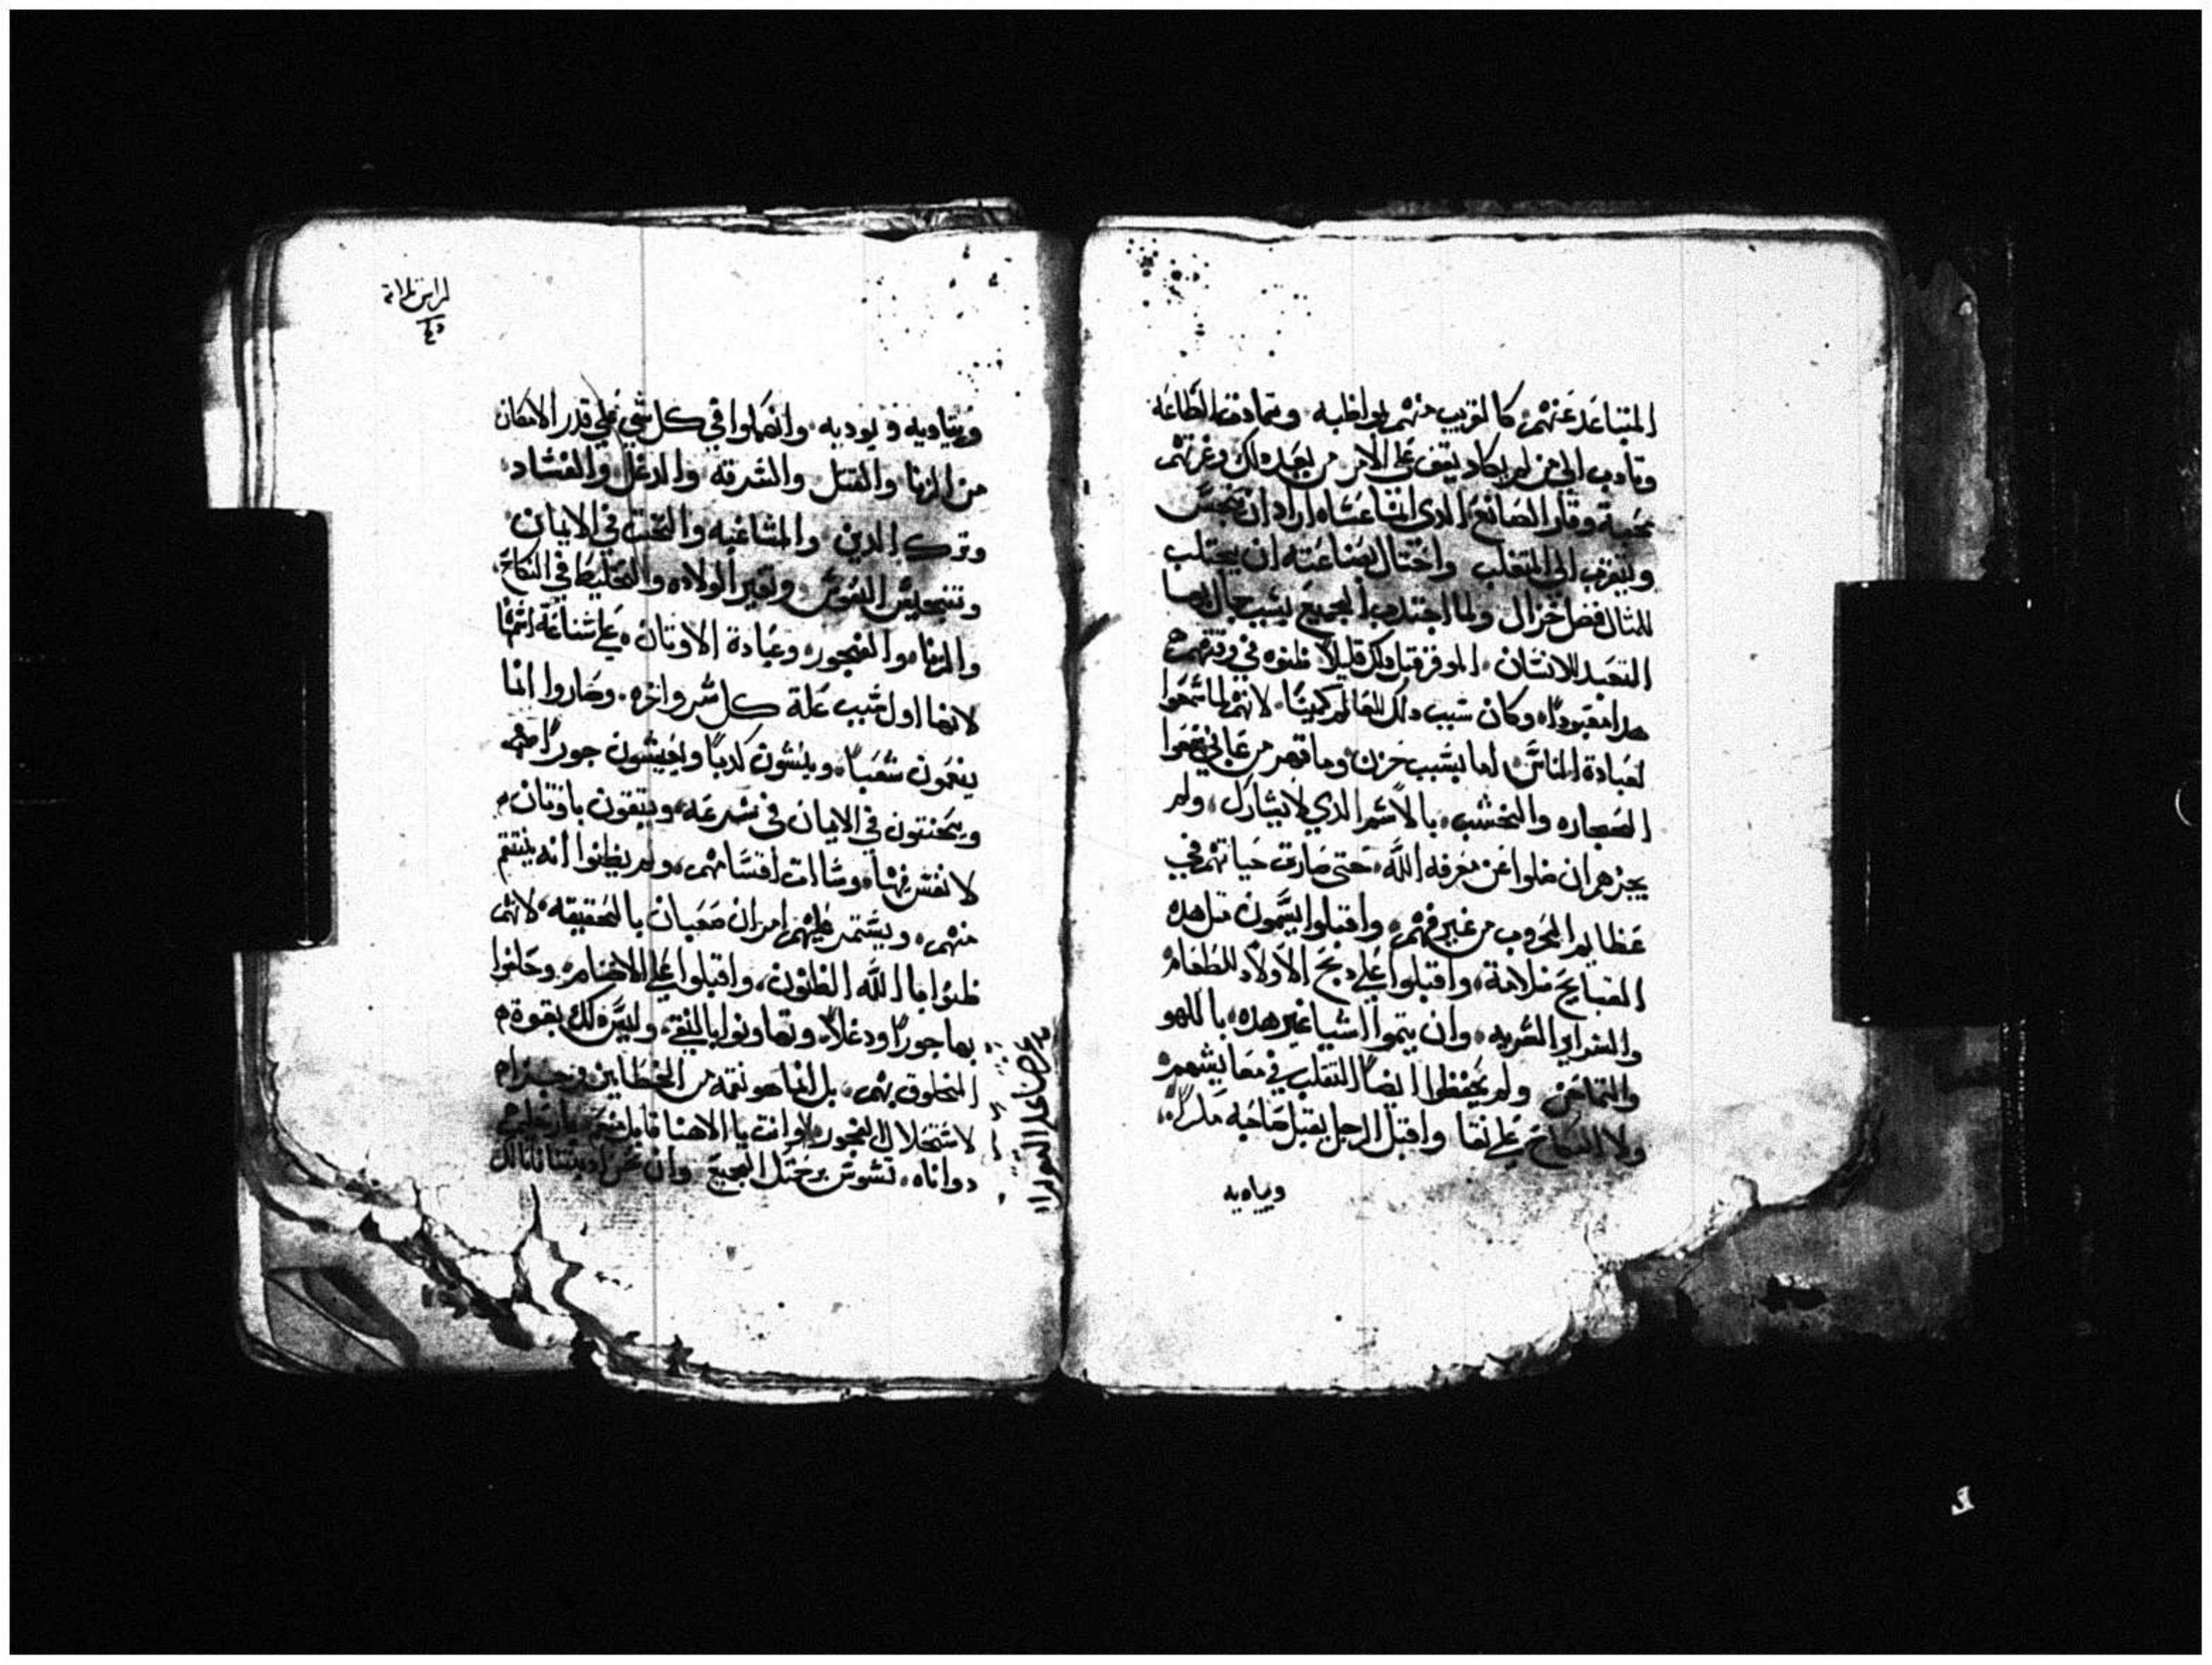 المتباعد عنهم كالقريب منهم بمواظبه وتمادت الطاعه
وتادب الى من لم يكاد يقف على الامر من بعد ذلك وغرتهم
محبة وقار الصانع الذي انشا عساه اراد ان
ويتقرب الى المتغلب واحتال بصناعته ان يجتلب
للمثال فضل اخزال ولما اجتدب الجميع بسبب جمال
التعبد للانسان الموقر قبل ذلك قليلا ظنوه في وقتهم
هدا معبودا وكان سبب ذلك للعالم كمينا لانهم لما سمحوا
لعبادة الناس اما بسبب حزن وما قهر من
الحجاره والخشب بالاسم الذي لا يشارك ولم
يجزهم ان ضلوا عن معرفه الله حتى صارت حياتهم في
عظايم الحروب من غير فهم واقبلوا يسمون مثل هذه
القبايح سلامة واقبلوا على دبح الاولاد للطغام
والسراير السريه وان يتموا اشيا غير هده باللهو
ولم يحفظوا ايضا التقلب في معايشهم
ولا النكاح على نقا واقبل الرجل يقتل صاحبه مكرا
ويباديه
ويباديه ويوديه وانهملوا في كل شي على قدر الامكان
من الزنا والقتل والسرقه والدغل والفساد
وترك الدين والمشاغبه والحنث في الايمان
وتنجيس النفوس وتغير الولاده والتخليط في النكاح
والزنا والفجور وعبادة الاوتان على شناعة اسمها
لانها اول سبب علة كل شر واخره وصاروا انما
ينعمون شغبا وينشون كدبا ويعيشون جورا
ويحنتون في الايمان في سرعه ويتقون باوتان
لا نفس فيها وساات اقسامهم ولم يظنوا انه ينتقم
منهم ويستمر عليهم امران صعبان بالحقيقه لانهم
ظنوا بالله الظنون واقبلوا على الاصنام وحلفوا
بها جورا ودغلا وتهاونوا بالنقي وليس ذلك بقوة
المخلوق بهم بل انما هو نقمه من الخطايين
لاستحلال الفجور وانت يا الاهنا
دواناه تسوس برحمتك الجميع وان نحن